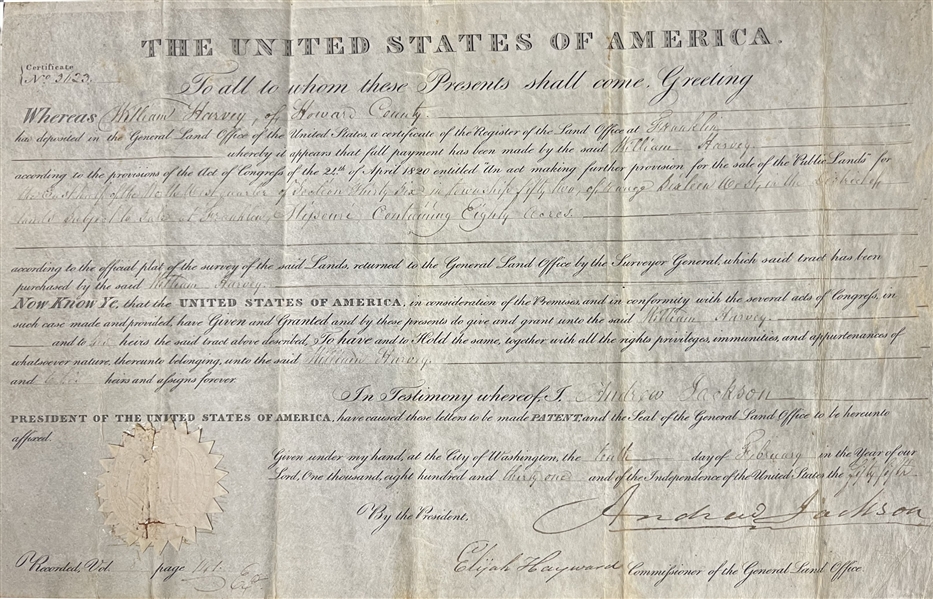 THE UNITED STATES OF AMERICA.
Certificate
No. 3423
To all to whom these Presents shall come, Greeting
Whereas William Harvey, of Howard County
has deposited in the General Land Office of the United States, a certificate of the Register of the Land Office at Franklin
whereby it appears that full payment has been made by the said William Harvey
according to the provisions of the Act of Congress of the 24th of April 1820 entitled "An act making further provision for the sale of the Public Lands" for
the East half of the West quarter of Section Thirty Six in Township fifty two, of Range Sixteen West, in the
Lands Subject to Sale at Franklin, Containing Eighty Acres
according to the official plat of the survey of the said Lands, returned to the General Land Office by the Surveyor General, which said tract has been
purchased by the said William Harvey
Now Know Ye, that the UNITED STATES OF AMERICA, in consideration of the Premises, and in conformity with the several acts of Congress, in
such case made and provided, have Given and Granted and by these presents do give and grant unto the said William Harvey
and to his heirs the said tract above described, To have and to Hold the same, together with all the rights privileges, immunities, and appurtenances of
whatsoever nature, thereunto belonging, unto the said William Harvey
and to his heirs and assigns forever.
In Testimony whereof, I, Andrew Jackson
PRESIDENT OF THE UNITED STATES OF AMERICA, have caused these letters to be made PATENT, and the Seal of the General Land Office to be hereunto
affixed.
Given under my hand, at the City of Washington, the tenth day of February in the Year of our
Lord, One thousand, eight hundred and thirty one and of the Independence of the United States the fifty fifth
By the President, Andrew Jackson
Elijah Hayward Commissioner of the General Land Office.
Recorded, Vol page